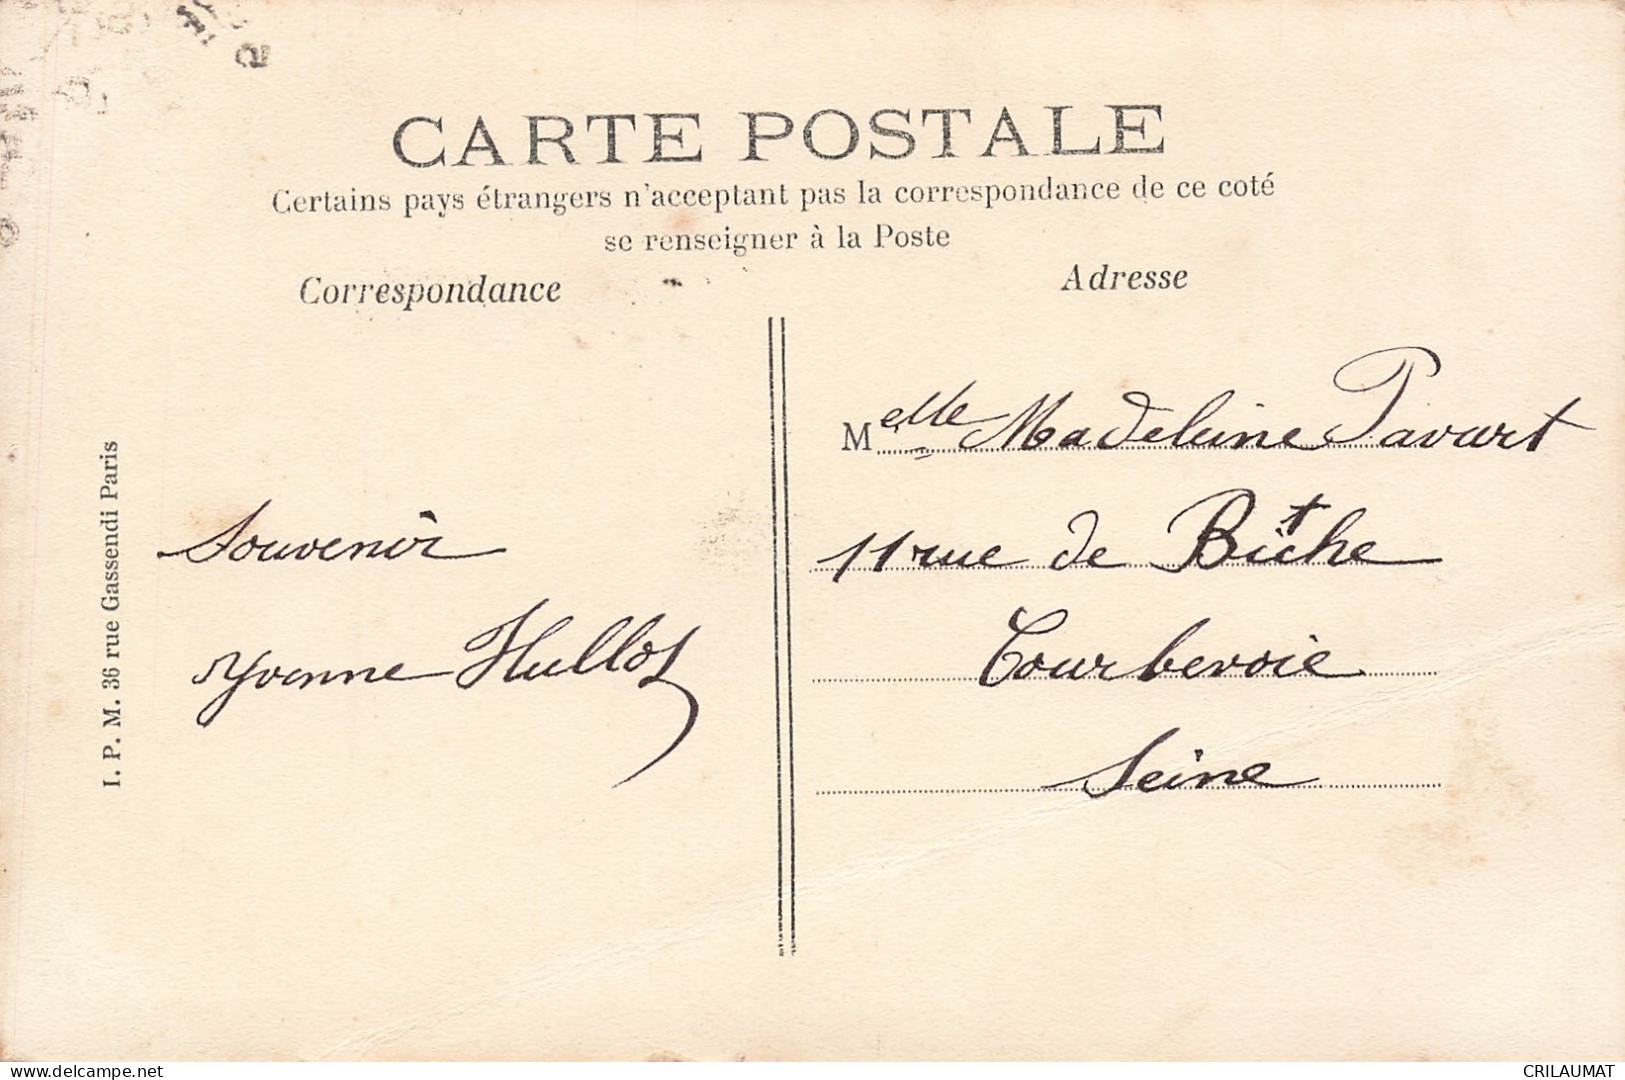 CARTE POSTALE
Certains pays étrangers n'acceptant pas la correspondance de ce coté
se renseigner à la Poste
Correspondance
Adresse
Souvenir
Yvonne Hullot
Melle Madeleine Pavart
11 rue de
Courbevoie
Seine
I. P. M. 36 rue Gassendi Paris
https://www.delcampe.net
CRILAUMAT